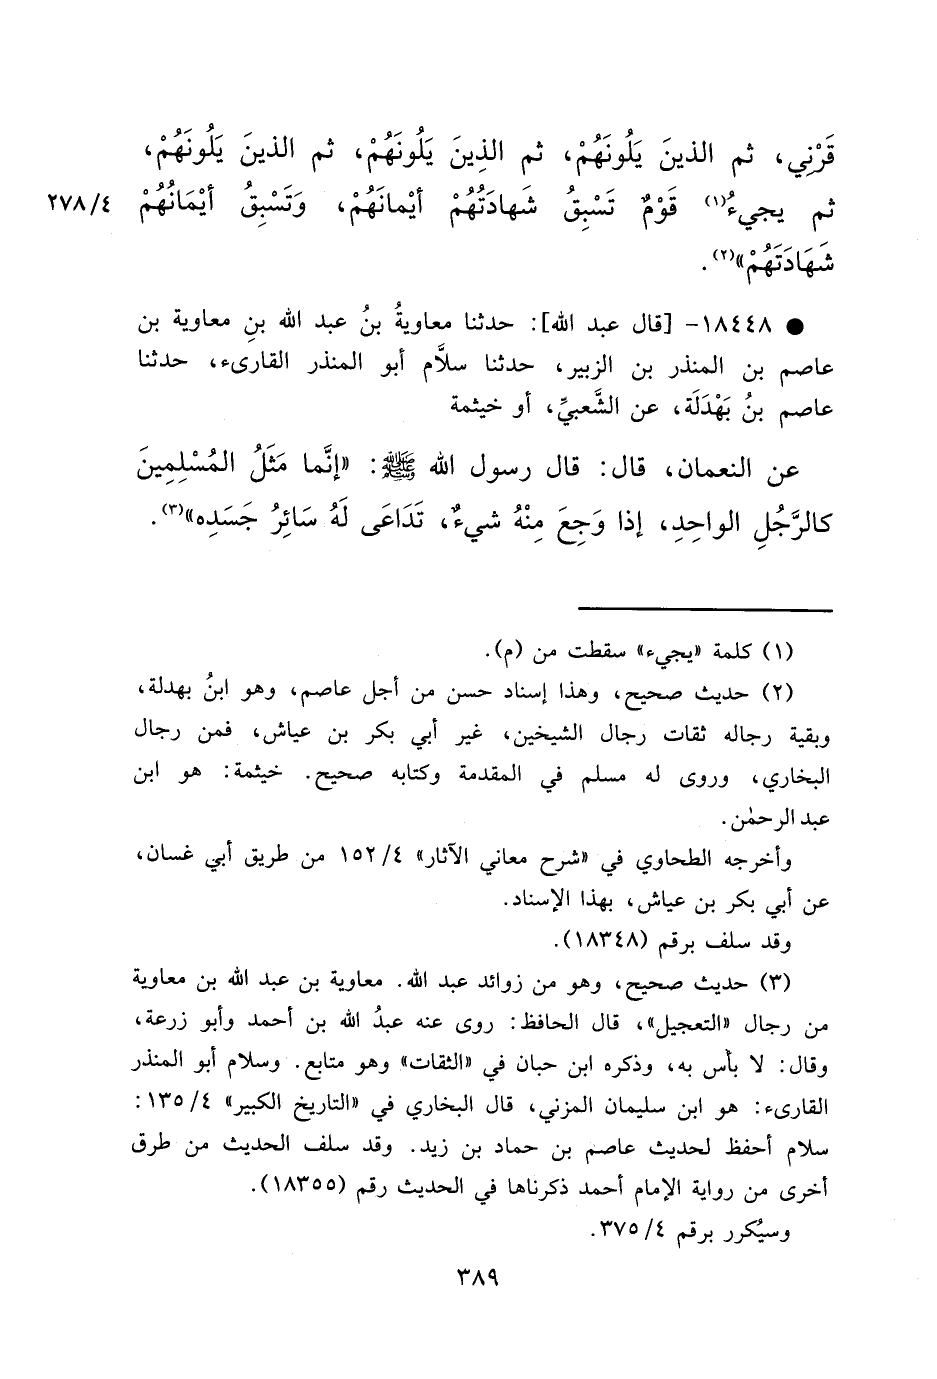 قَرْنِي، ثم الذينَ يَلُونَهُمْ، ثم الذِينَ يَلُونَهُمْ، ثم الذينَ يَلُونَهُمْ،
ثم يجيءُ(١) قَوْمٌ تَسْبِقُ شَهادَتُهُمْ أيْمانَهُمْ، وَتَسْبِقُ أيْمَانُهُمْ ٢٧٨/٤
شَهَادَتَهُمْ»(٢).
● ١٨٤٤٨- [قال عبد الله]: حدثنا معاويةُ بنُ عبد الله بنِ معاوية بن
عاصم بن المنذر بن الزبير، حدثنا سلَّام أبو المنذر القارىء، حدثنا
عاصم بنُ بَهْدَلَة، عن الشَّعبيِّ، أو خيثمة
عن النعمان، قال: قال رسول الله ﷺ: «إنَّما مَثَلُ المُسْلِمِينَ
كالرَّجُلِ الواحِدِ، إذا وَجِعَ مِنْهُ شيءٌ، تَدَاعَى لَهُ سَائِرُ جَسَدِه»(٣).
(١) كلمة «يجيء» سقطت من (م).
(٢) حديث صحيح، وهذا إسناد حسن من أجل عاصم، وهو ابنُ بهدلة،
وبقية رجاله ثقات رجال الشيخين، غير أبي بكر بن عياش، فمن رجال
البخاري، وروى له مسلم في المقدمة وكتابه صحيح. خيثمة: هو ابن
عبد الرحمٰن.
وأخرجه الطحاوي في «شرح معاني الآثار» ١٥٢/٤ من طريق أبي غسان،
عن أبي بكر بن عياش، بهذا الإسناد.
وقد سلف برقم (١٨٣٤٨).
(٣) حديث صحيح، وهو من زوائد عبد الله. معاوية بن عبد الله بن معاوية
من رجال «التعجيل»، قال الحافظ: روى عنه عبدُ الله بن أحمد وأبو زرعة،
وقال: لا بأس به، وذكره ابن حبان في «الثقات» وهو متابع. وسلام أبو المنذر
القارىء: هو ابن سليمان المزني، قال البخاري في «التاريخ الكبير» ١٣٥/٤:
سلام أحفظ لحديث عاصم بن حماد بن زيد. وقد سلف الحديث من طرق
أخرى من رواية الإمام أحمد ذكرناها في الحديث رقم (١٨٣٥٥).
وسيُكرر برقم ٣٧٥/٤.
٣٨٩